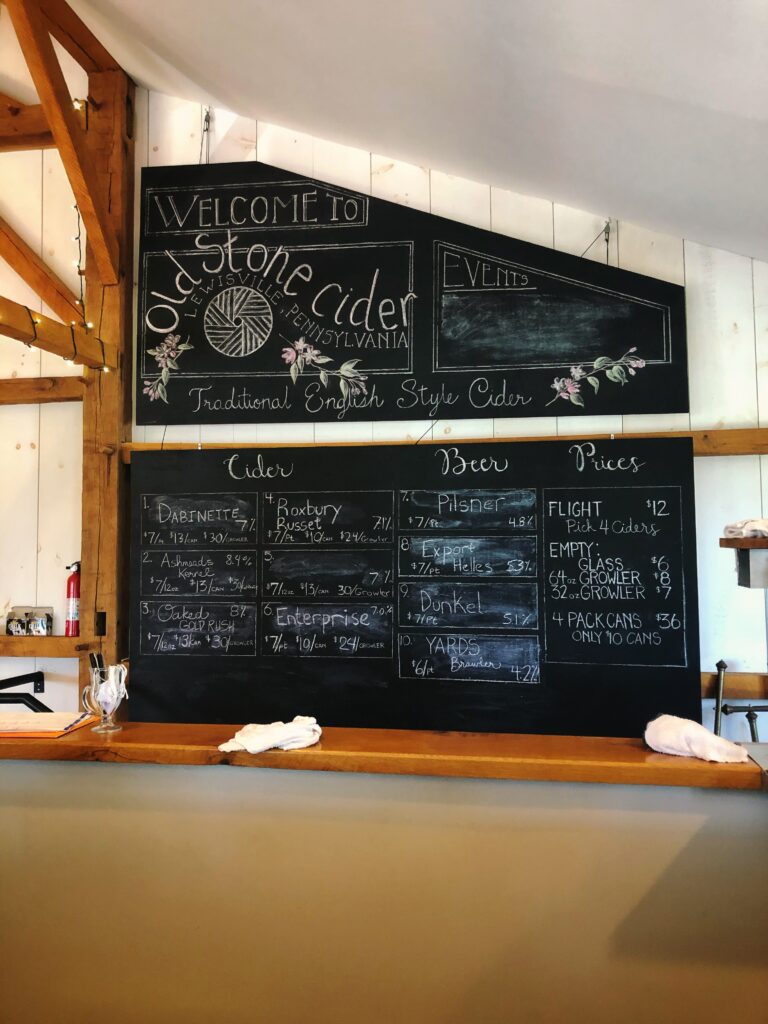 WELCOME TO
Old Stone Cider
LEWISVILLE, PENNSYLVANIA
EVENTS
Traditional English Style Cider
Cider
1. DABINETTE 7%
$13/CAN $30/GROWLER
2. Ashmead's 8.4%
Kernel
$7/12oz $13/CAN
3. Oaked 8%
GOLD RUSH
$7/12oz $13/CAN $30/GROWLER
4. Roxbury
Russet 7.1%
$7/Pt $10/CAN $24/Growler
5.
7%
$7/12oz $13/CAN 30/Growler
6. Enterprise
$7/pt $10/CAN $24/GROWLER
Beer
7. Pilsner
$7/Pt 4.8%
8. Export
Helles 5.3%
$7/Pt
9. Dunkel
$7/Pt 5.1%
10. YARDS
Brawler
$6/pt 4.2%
Prices
FLIGHT $12
Pick 4 Ciders
EMPTY:
GLASS $6
64oz GROWLER $8
32oz GROWLER $7
4 PACK CANS $36
ONLY $10 CANS